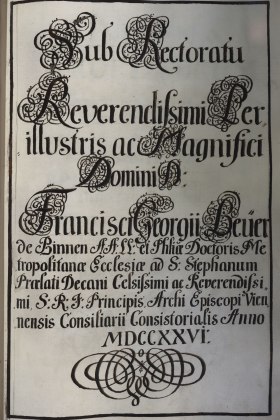 Sub Rectoratu
Reverendissimi Per
illustris ac Magnifici
Domini D:
Francisci Georgii Beüer
de Binnen A.A.L.L. et Phliæ Doctoris Me
tropolitanæ Ecclesiæ ad S: Stephanum
Prælati Decani Celsissimi ac Reverendissi,
mi S. R. I. Principis Archi Episcopi Vien
nensis Consiliarii Consistorialis Anno
MDCCXXVI.